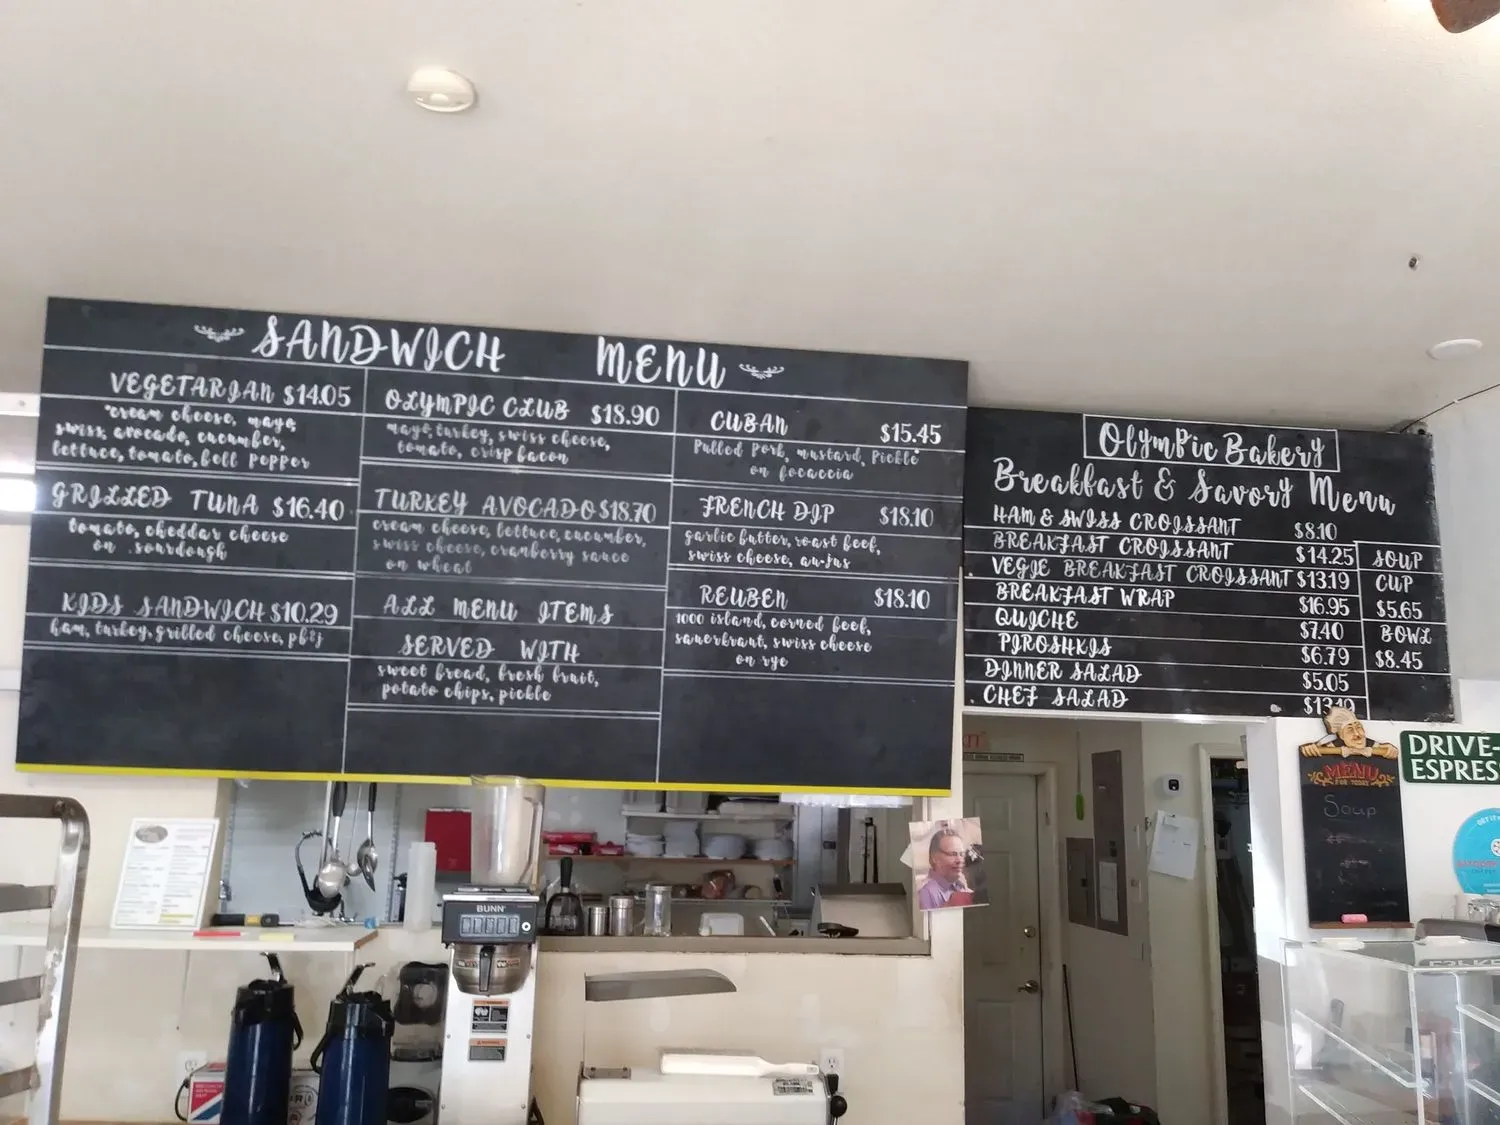 SANDWICH MENU
VEGETARIAN $14.05
*cream cheese, mayo,
swiss, avocado, cucumber,
lettuce, tomato, bell pepper
GRILLED TUNA $16.40
tomato, cheddar cheese
on sourdough
KIDS SANDWICH $10.29
ham, turkey, grilled cheese, pb&j
OLYMPIC CLUB $18.90
mayo, turkey, swiss cheese,
tomato, crisp bacon
TURKEY AVOCADO $18.70
cream cheese, lettuce, cucumber,
swiss cheese, cranberry sauce
on wheat
ALL MENU ITEMS
SERVED WITH
sweet bread, fresh fruit,
potato chips, pickle
CUBAN $15.45
Pulled Pork, mustard, Pickle
on focaccia
FRENCH DIP $18.10
garlic butter, roast beef,
swiss cheese, au-jus
REUBEN $18.10
1000 island, corned beef,
sauerkraut, swiss cheese
on rye
Olympic Bakery
Breakfast & Savory Menu
HAM & SWISS CROISSANT $8.10
BREAKFAST CROISSANT $14.25
VEGIE BREAKFAST CROISSANT $13.19
BREAKFAST WRAP $16.95
QUICHE $7.40
PIROSHKIS $6.79
DINNER SALAD $5.05
CHEF SALAD $13.19
SOUP
CUP
$5.65
BOWL
$8.45
MENU
FOR TODAY
Soup
DRIVE-
ESPRES
BUNN